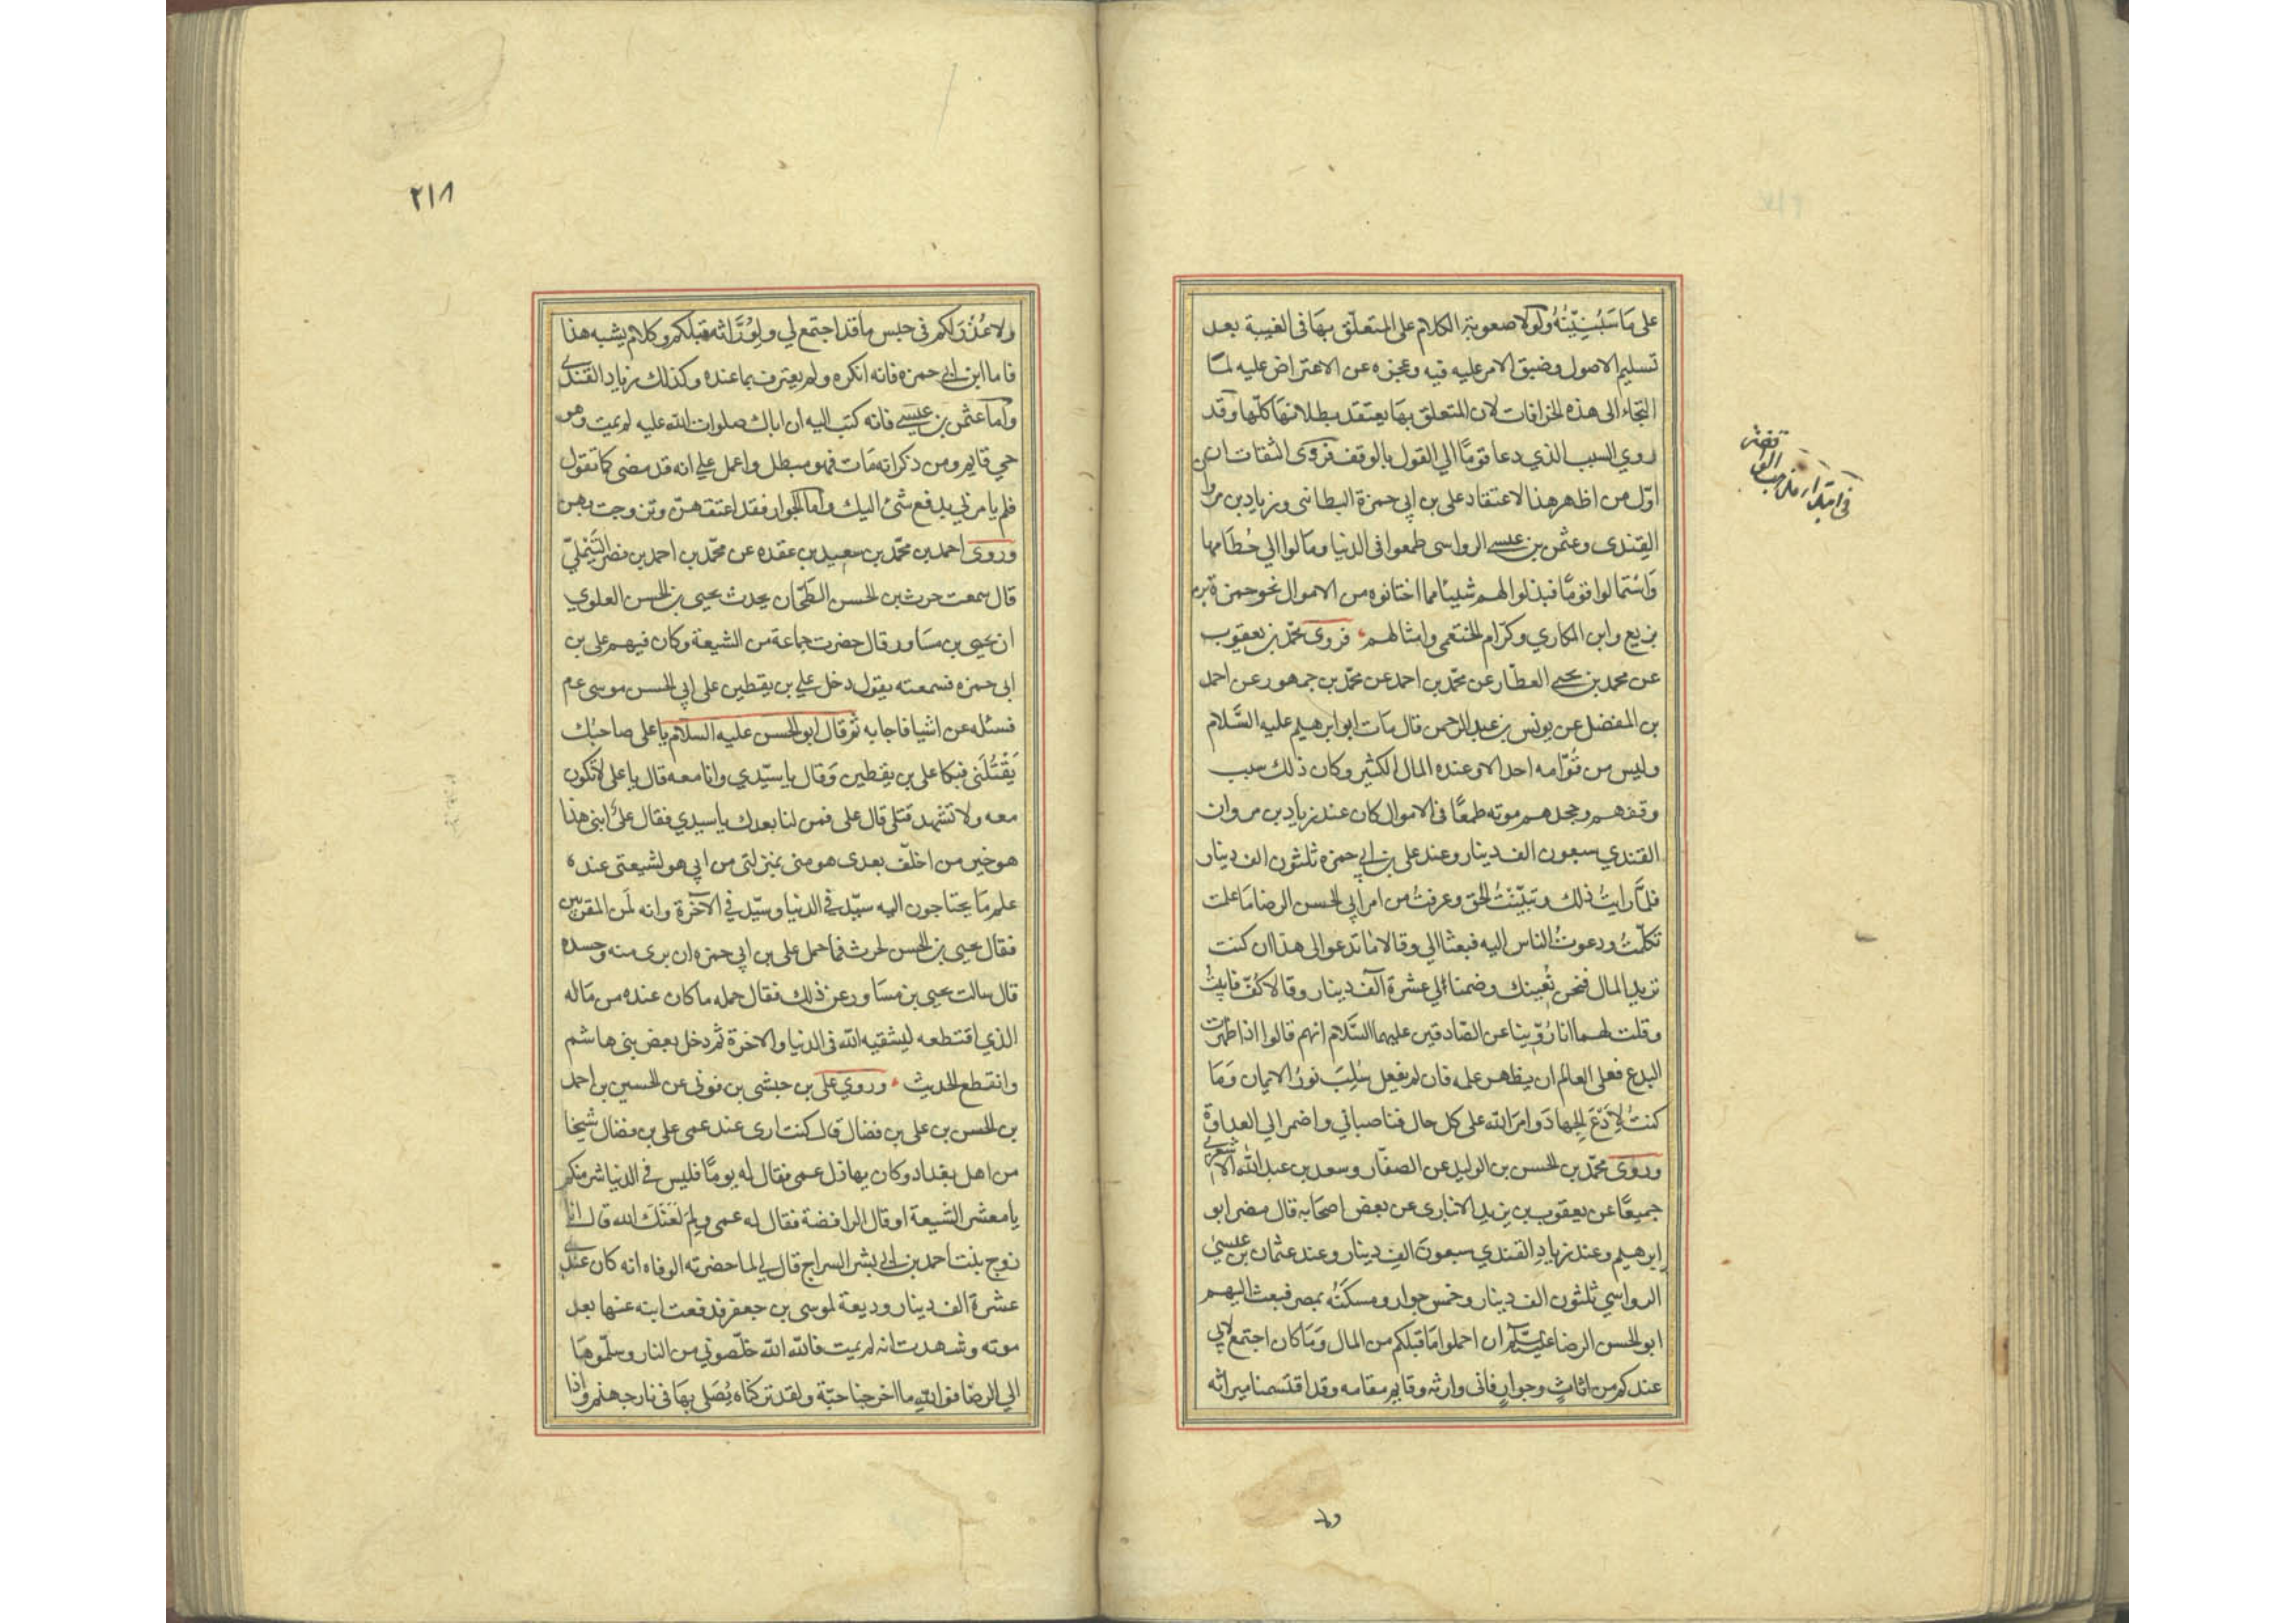 على ما سنبينه ولولا صعوبة الكلام على المتعلق بها في الغيبة بعد
تسليم الاصول وضيق الامر عليه فيه وعجزه عن الاعتراض عليه لما
التجاء الى هذه الخرافات لان المتعلق بها يعتقد بطلانها كلها وقد
روي السبب الذي دعا قومًا الي القول بالوقف فروى الثقات ان
اوّل من اظهر هذا الاعتقاد على بن ابي حمزة البطائنى وزياد بن مروان
القندى وعثمن بن عيسى الرواسى طمعوا فى الدنيا ومالوا الي حُطامها
وَاسْتمالوا قومًا فبذلوا لهم شيئا مما اختانوه من الاموال نحو حمزة بن
بزيع وابن المكاري وكرّام الخثعمى وامثالهم فروى محمّد بن يعقوب
عن محمد بن يحيى العطّار عن محمّد بن احمد عن محمّد بن جمهور عن احمد
بن المفضل عن يونس بن عبد الرحمن قال مات ابو ابرهيم عليه السَّلام
وليس من قُوّامه احد الا وعنده المال الكثير وكان ذلك سبب
وقفهم وجحدهم موته طمعًا فى الاموال كان عند زياد بن مروان
القندي سبعون الف دينار وعند على بن ابي حمزه ثلثون الف دينار
فلمّا رايتُ ذلك وتبيّنتُ الحق وعرفتُ من امر ابي الحسن الرضا ما علمت
تكلّمتُ ودعوتُ الناس اليه فبعثا الي وقالا ما تدعو الى هذا ان كنت
تريد المال فنحن نُغنيك وضمنا لي عشرة آلف دينار وقالا كُفّ فابيتُ
وقلت لهما انا رُوّينا عن الصّادقين عليهما السَّلام انهم قالوا اذا ظهرت
البدع فعلى العالم ان يظهر علمه فان لم يفعل سُلِبَ نورُ الايمان وَمَا
كنتُ لاَدَعَ الجهادَ وامرَ الله على كل حال فناصباني واضمرا لي العداوة
وروى محمّد بن الحسن بن الوليد عن الصفّار وسعد بن عبد الله الاشعري
جميعًا عن يعقوب بن يزيد الانبارى عن بعض اصحابه قال مضى ابو
ابرهيم وعند زيادِ القندي سبعون الف دينار وعند عثمان بن عيسى
الرواسي ثلثون الف دينار وخمس جوار ومسكنُه بمصر فبعث اليهم
ابو الحسن الرضا عليه السلام ان احملوا ما قبلكم من المال وَمَا كان اجتمع لابي
عندكم من اثاثٍ وجوارٍ فانى وارثه وقايم مقامه وقد اقتسمنا ميراثه
ولا
فى ابتداء مذهب
ولا عُذْرَ لكم فى حبس ما قد اجتمع لي ولورّاثه قبلكم وكلام يشبه هذا
فاما ابن ابي حمزه فانه انكره ولم يعترف بما عنده وكذلك زياد القندى
واما عثمن بن عيسى فانه كتب اليه ان اباك صلوات الله عليه لم يمت وهو
حي قايم ومن ذكر انه مات فهو مبطل واعمل علي انه قد مضى كما تقول
فلم يامرني بدفع شئ اليك واما الجوار فقد اعتقهنّ وتزوجت بهن
وروى احمد بن محمّد بن سعيد بن عقده عن محمّد بن احمد بن نصر التيملي
قال سمعت حرث بن الحسن الطحّان يحدث يحيى بن الحسن العلوي
ان يحيى بن مساور قال حضرت جماعة من الشيعة وكان فيهم على بن
ابى حمزه فسمعته يقول دخل علي بن يقطين على ابي الحسن موسى عم
فسئله عن اشيا فاجابه ثم قال ابو الحسن عليه السلام يا على صاحبك
يَقْتُلَنى فبكا على بن يقطين وقال يا سيّدي وانا معه قال يا على لا تكون
معه ولا تشهد قتلى قال على فمن لنا بعدك يا سيدي فقال علىّ ابنى هذا
هو خير من اخلّف بعدى هو منى بمنزلتى من ابي هو لشيعتى عنده
علم ما يحتاجون اليه سيّد فى الدنيا وسيّد في الآخرة وانه لمن المقربين
فقال يحيى بن الحسن لحرث فما حمل على بن ابي حمزه ان برى منه وحسده
قال سالت يحيى بن مساور عن ذلك فقال حمله ما كان عنده من ماله
الذي اقتطعه ليشقيه الله فى الدنيا والاخرة ثم دخل بعض بنى هاشم
وانقطع الحديث وروي على بن حبشى بن قونى عن الحسين بن احمد
بن الحسن بن على بن فضال قال كنت ارى عند عمى على بن فضال شيخا
من اهل بغداد وكان يهازل عمى فقال له يومًا فليس في الدنيا شر منكم
يا معشر الشيعة او قال الرافضة فقال له عمى ولِمَ لعنك الله قال انا
زوج بنت احمد بن ابي بشر السراج قال لي لما حضرته الوفاه انه كان عندى
عشرة الف دينار وديعة لموسى بن جعفر فدفعت ابنه عنها بعد
موته وشهدت انه لم يمت فالله الله خلّصوني من النار وسلّموها
الي الرضا فوالله ما اخرجنا حبّة ولقد تركناه يُصلى بها فى نار جهنم واذا
٢١٨